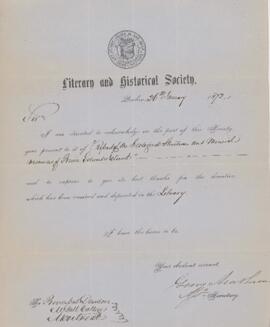 Literary and Historical Society.
Quebec 26th January 1872.
Sir
I am directed to acknowledge on the part of this Society
your present to it of "Report on the Geological Structure and Mineral
Resources of Prince Edward Island"
and to express to you its best thanks for the donation
which has been received and deposited in the Library
I have the honor to be
Your obedient servant
George
Secretary
Principal Dawson
McGill College
Montreal